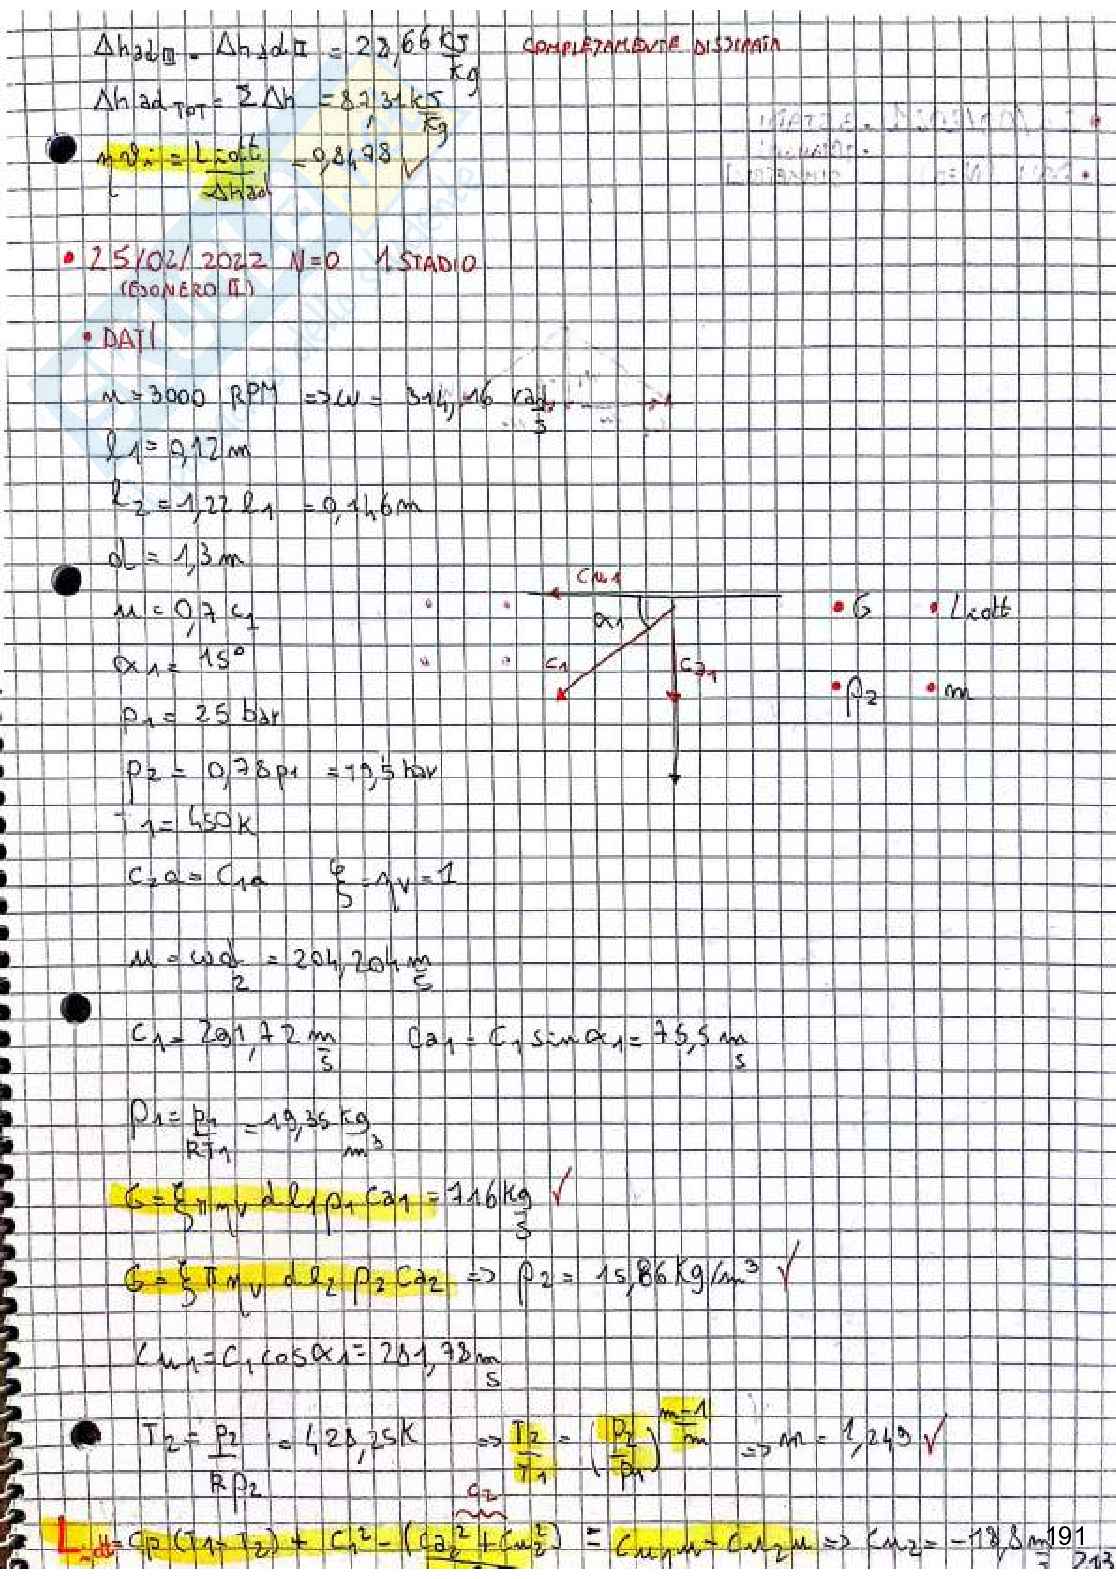 Δhad III = Δhad II = 28,66 kJ/kg COMPLETAMENTE DISSIPATA
Δhad TOT = ΣΔh = 87,31 kJ/kg
ηϑi = Liott/Δhad = 0,8478 ✓
• 25/02/2022 N=0 1 STADIO
(ESONERO II)
• DATI
n = 3000 RPM => ω = 314,16 rad/s
l1 = 0,12 m
l2 = 1,22 l1 = 0,146 m
d = 1,3 m
u = 0,7 c1
α1 = 15°
p1 = 25 bar
p2 = 0,78 p1 = 19,5 bar
T1 = 450 K
c2a = c1a ξ = ηv = 1
cu1
α1
c1
ca1
• G • Liott
• ρ2 • m
u = ωd/2 = 204,204 m/s
c1 = 291,72 m/s ca1 = c1 sin α1 = 75,5 m/s
ρ1 = p1/RT1 = 19,35 kg/m³
G = ξ π ηv d l1 ρ1 ca1 = 716 kg/s ✓
G = ξ π ηv d l2 ρ2 ca2 => ρ2 = 15,86 kg/m³ ✓
cu1 = c1 cos α1 = 281,78 m/s
T2 = p2/Rρ2 = 428,25 K => T2/T1 = (p2/p1)^(m-1/m) => m = 1,249 ✓
c2
Liott = cp (T1 - T2) + c1² - (ca2² + cu2²)/2 = cu1 u - cu2 u => cu2 = -18,8 m/s
191
213